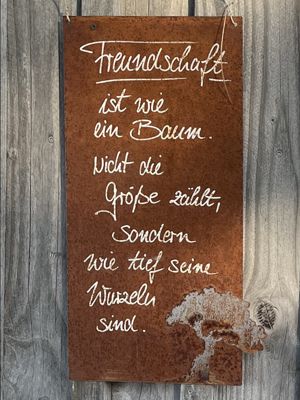 Freundschaft
ist wie
ein Baum.
Nicht die
Größe zählt,
sondern
wie tief seine
Wurzeln
sind.